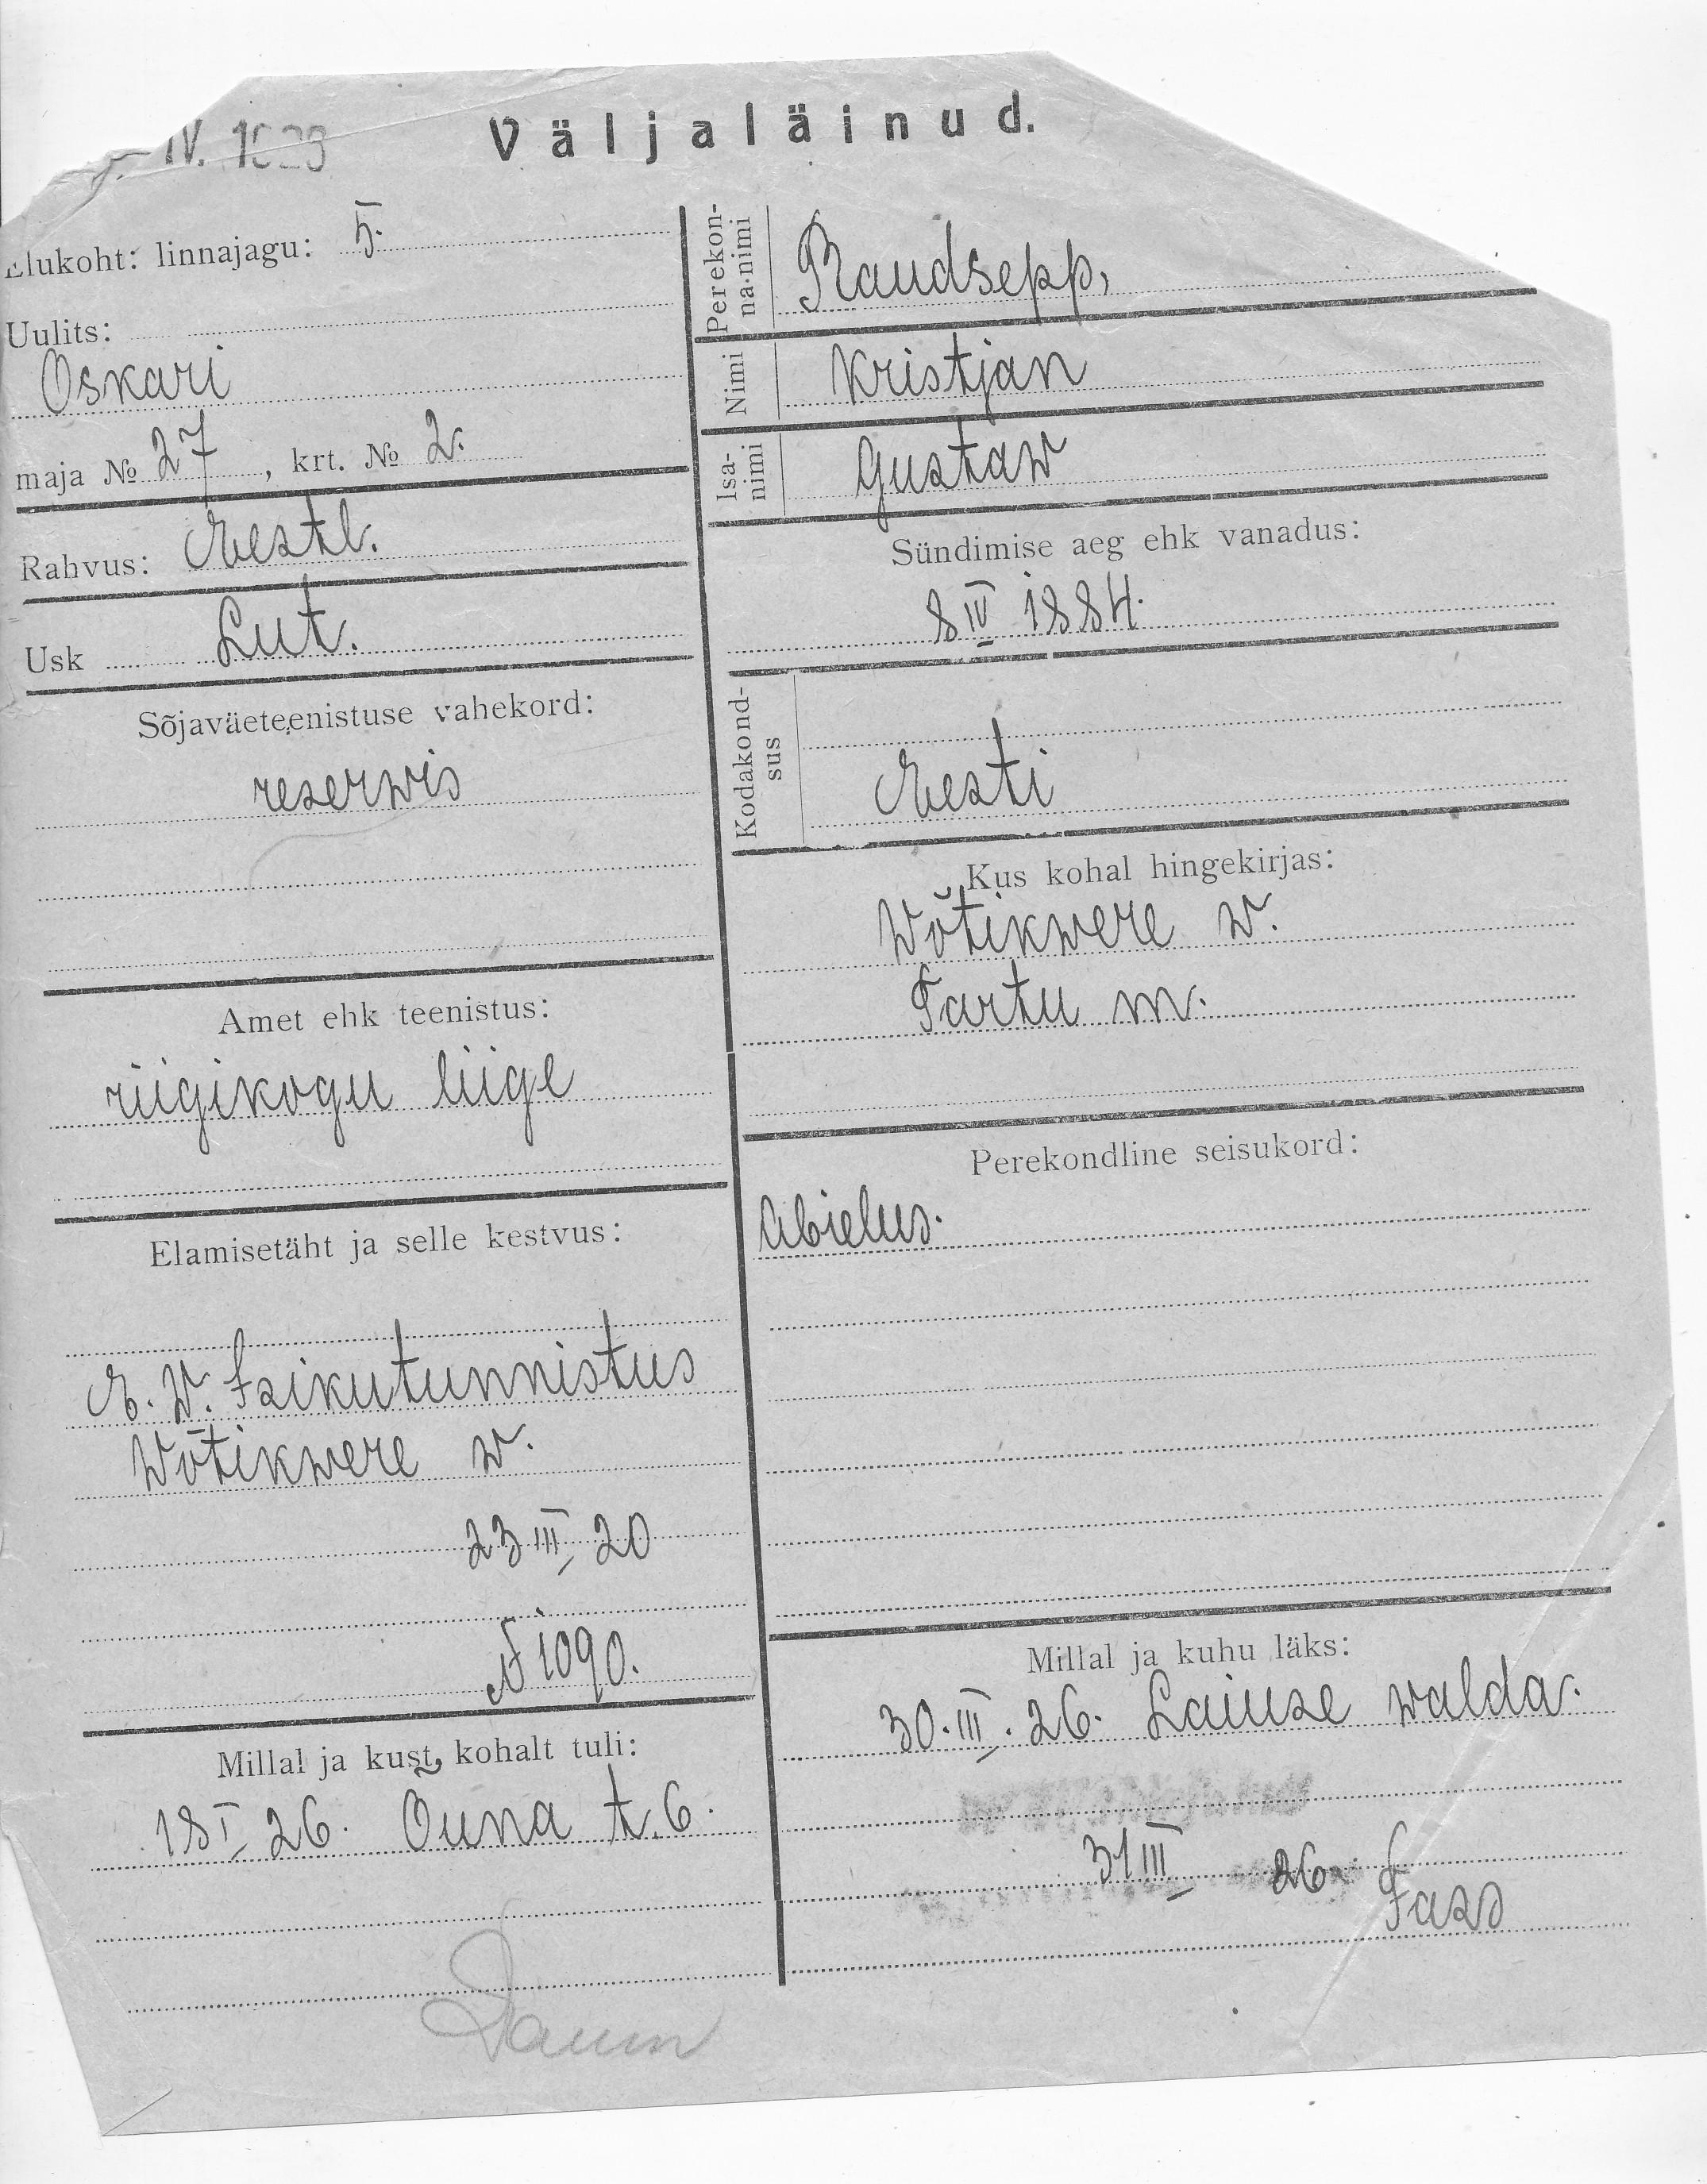 IV. 1926
Väljaläinud.
Elukoht: linnajagu: 5.
Uulits:
Oskari
maja № 27, krt. № 2.
Rahvus: Eestl.
Usk Lut.
Sõjaväeteenistuse vahekord:
reserwis
Amet ehk teenistus:
riigikogu liige
Elamisetäht ja selle kestvus:
E. W. Isikutunnistus
Wõtikwere w.
23 III 20
№ 1090.
Millal ja kust kohalt tuli:
18 I 26. Õuna t. 6.
Perekon-
na-nimi Raudsepp,
Nimi Kristjan
Isa-
nimi Gustaw
Sündimise aeg ehk vanadus:
8 IV 1884.
Kodakond-
sus Eesti
Kus kohal hingekirjas:
Wõtikwere w.
Tartu m.
Perekondline seisukord:
Abielus.
Millal ja kuhu läks:
30. III. 26. Laiuse walda.
31 III 26.